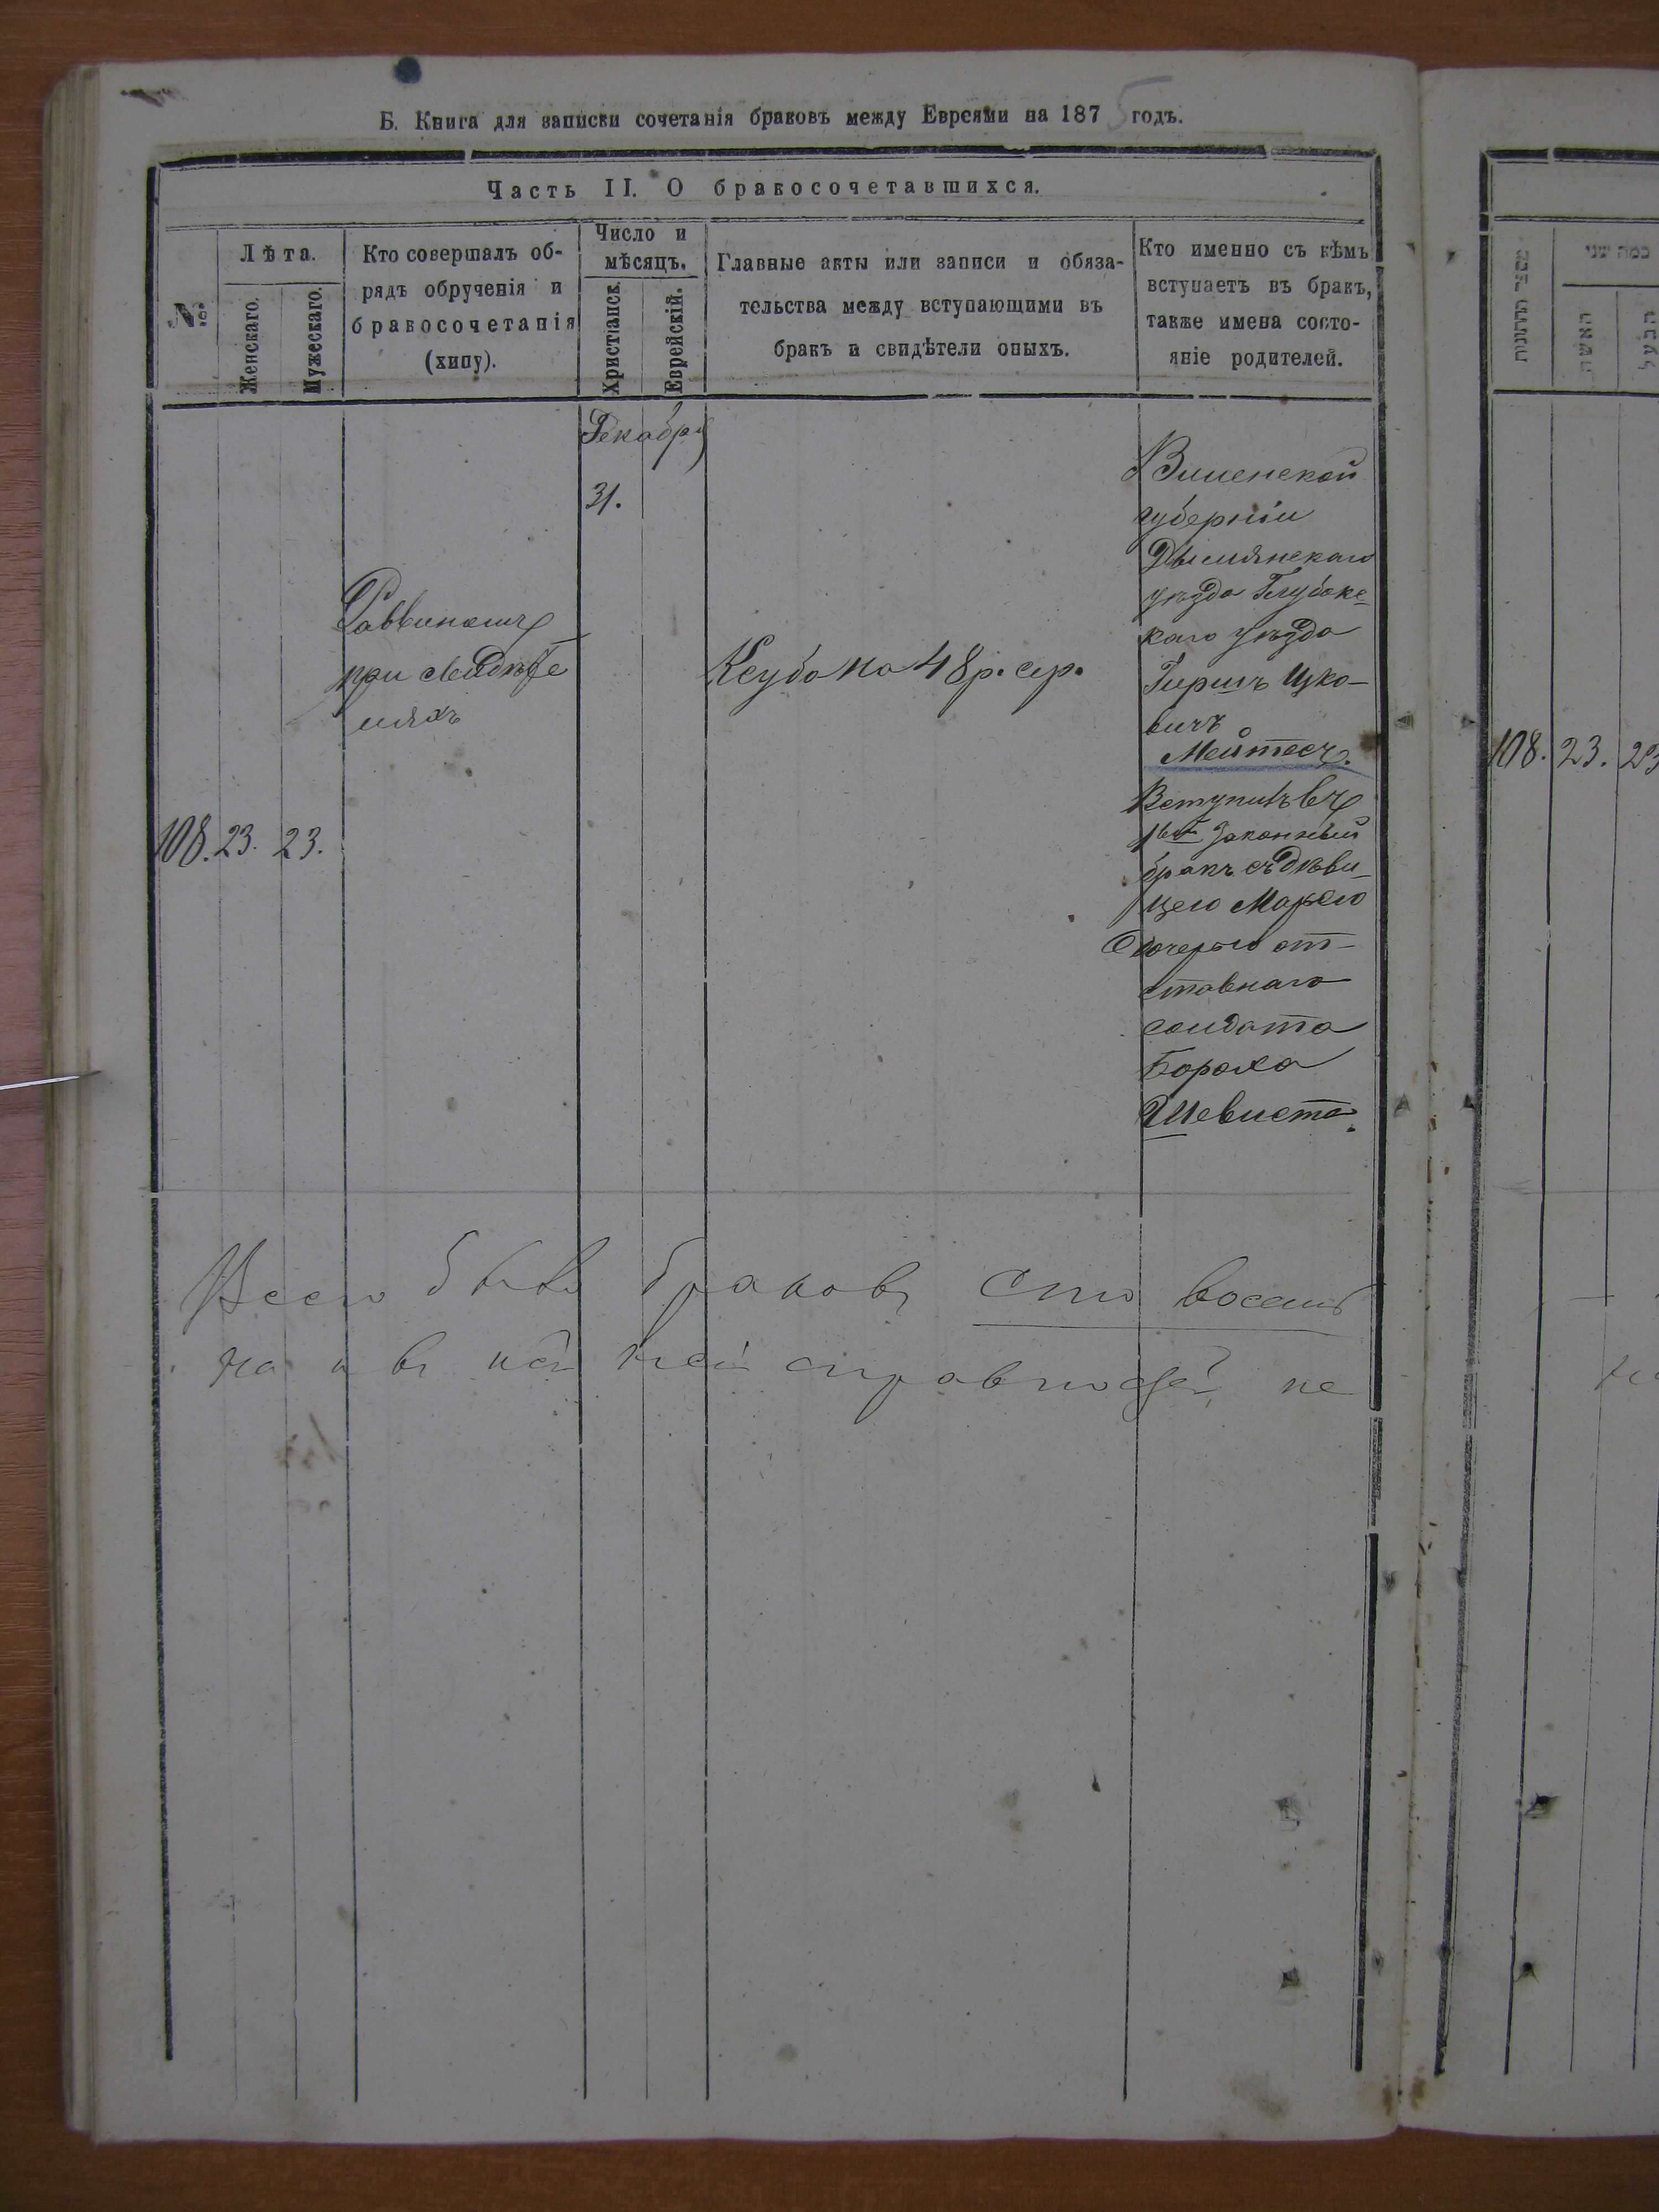 Б. Книга для записки сочетанія браковъ между Евреями на 1875 годъ.
Часть II. О бракосочетавшихся.
№
Лѣта.
Женскаго.
Мужескаго.
Кто совершалъ об-
рядъ обрученія и
бракосочетанія
(хипу).
Число и
мѣсяцъ.
Христіанск.
Еврейскій.
Главные акты или записи и обяза-
тельства между вступающими въ
бракъ и свидѣтели оныхъ.
Кто именно съ кѣмъ
вступаетъ въ бракъ,
также имена состо-
яніе родителей.
108. 23. 23.
Раввиномъ
при свидѣте
ляхъ
Декабря
31.
Ксуба на 48 р. сер.
Виленской
губерніи
уѣзда Глубоке-
каго уѣзда
Гиршъ Ицко-
вичъ
Мейтесъ.
Вступилъ въ
1вый законный
бракъ съ дѣви-
цею
дочерью от-
ставнаго
солдата
Бороха
Шевиста.
Всего было браковъ сто восемь
מספר החתונות
כמה שני
האשה
הבעל
108. 23. 23